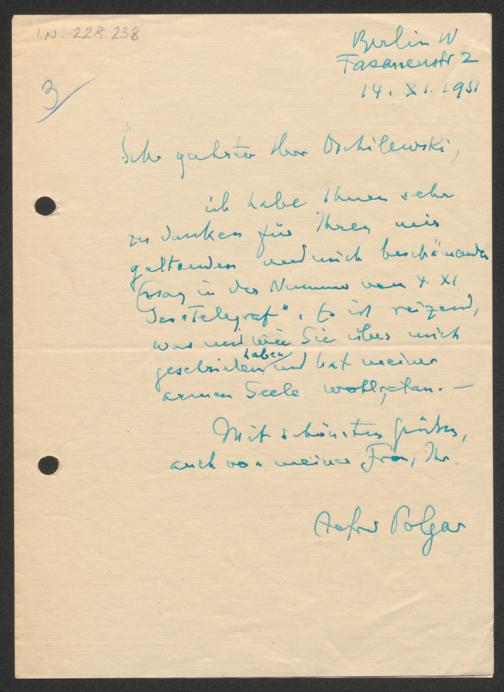 I.N. 228.238
3
Berlin W
Fasanenstr 2
14. XI. 1951
Sehr geehrter Herr Oschilewski,
ich habe Ihnen sehr
zu danken für Ihren mir
geltenden und mich beschämenden
Essay in der Nummer vom 4. XI
des "Telegraf". Es ist reizend,
was und wie Sie über mich
geschrieben haben und hat meiner
armen Seele wohlgetan. —
Mit schönsten Grüßen,
auch von meiner Frau, Ihr
Alfred Polgar